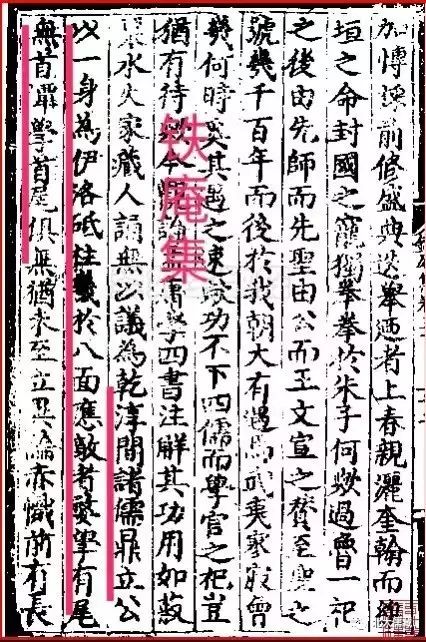 前修盛典迭舉迺者上春親灑奎翰而
垣之命封國之寵獨拳拳於朱子何歟過魯一祀
之後由先師而先聖由公而王文宣之賛至聖之
號幾千百年而後於我朝大有遇焉武夷寒寂曾
幾何時奚其遇之速歟功不下四儒而學官之祀豈
猶有待 學四書注解其功用如菽
粟水火家藏人誦無以議為乾淳間諸儒鼎立公
以一身為伊洛砥柱 於八面應敵者 有尾
無首 學首尾俱無猶未至立異論亦 前有長
铁庵集